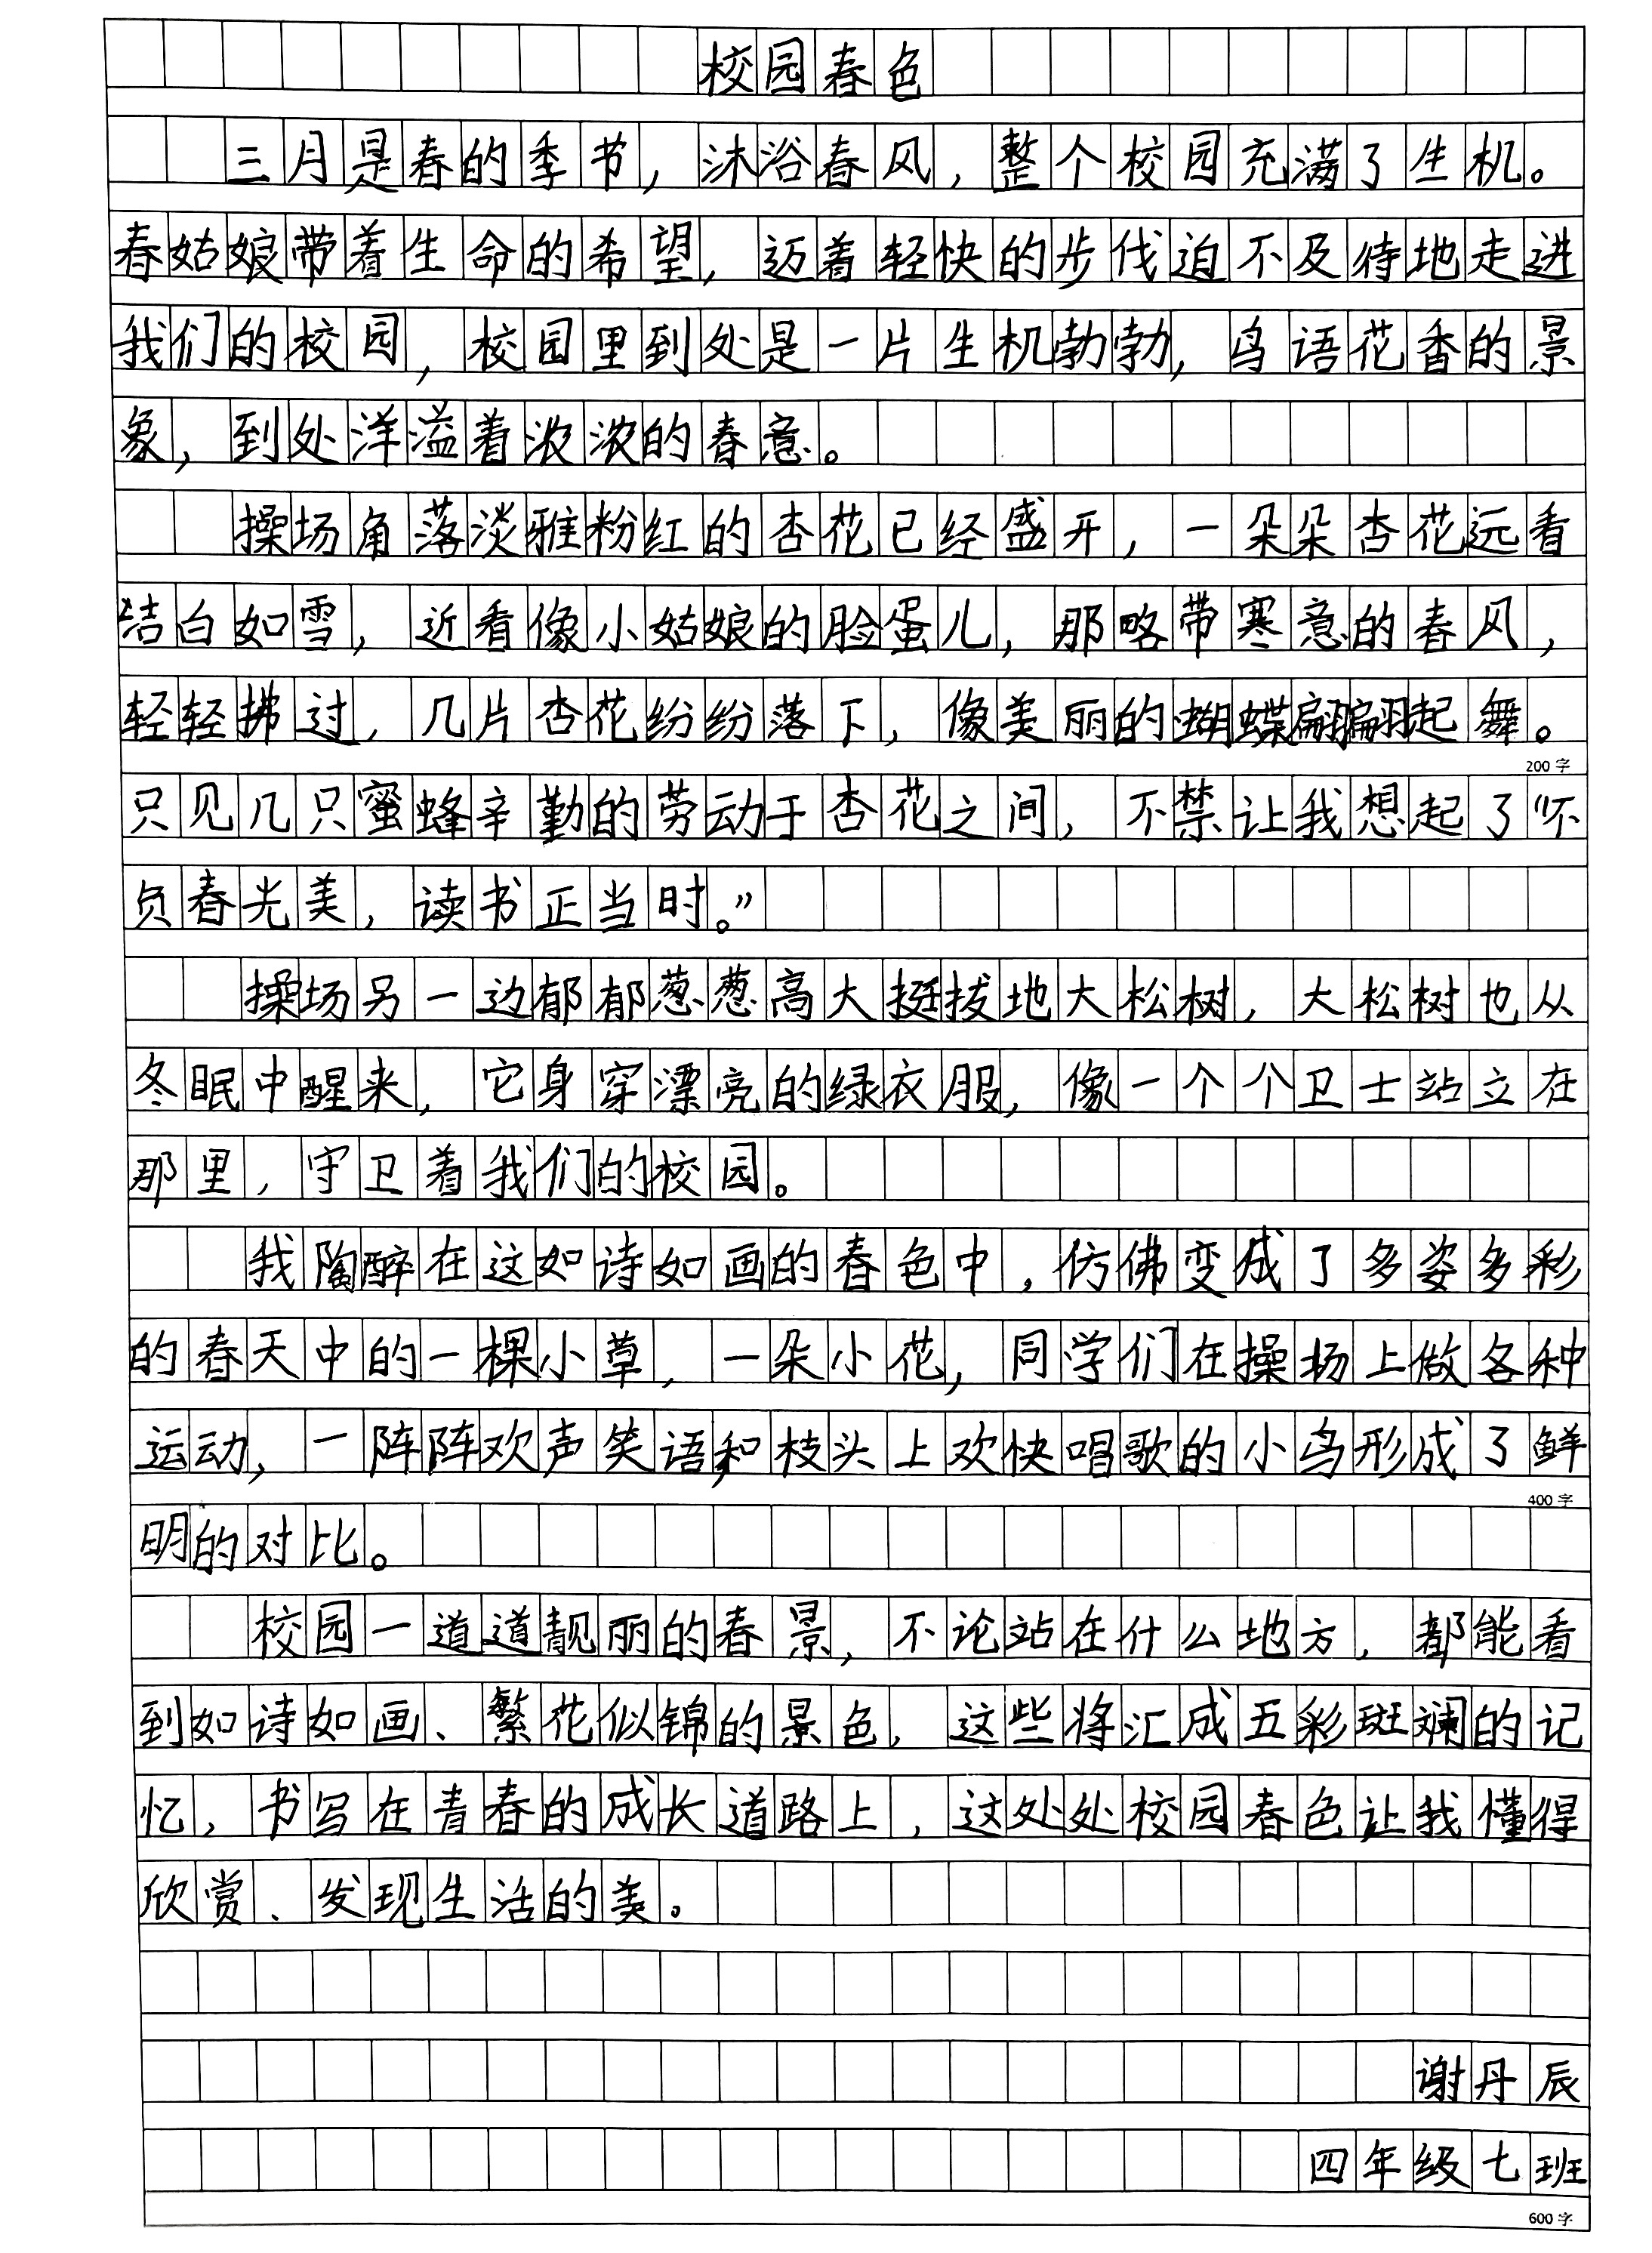 校园春色
三月是春的季节，沐浴春风，整个校园充满了生机。
春姑娘带着生命的希望，迈着轻快的步伐迫不及待地走进
我们的校园，校园里到处是一片生机勃勃，鸟语花香的景
象，到处洋溢着浓浓的春意。
操场角落淡雅粉红的杏花已经盛开，一朵朵杏花远看
洁白如雪，近看像小姑娘的脸蛋儿，那略带寒意的春风，
轻轻拂过，几片杏花纷纷落下，像美丽的蝴蝶翩翩起舞。
200字
只见几只蜜蜂辛勤的劳动于杏花之间，不禁让我想起了“不
负春光美，读书正当时。”
操场另一边郁郁葱葱高大挺拔地大松树，大松树也从
冬眠中醒来，它身穿漂亮的绿衣服，像一个个卫士站立在
那里，守卫着我们的校园。
我陶醉在这如诗如画的春色中，仿佛变成了多姿多彩
的春天中的一棵小草，一朵小花，同学们在操场上做各种
运动，一阵阵欢声笑语和枝头上欢快唱歌的小鸟形成了鲜
400字
明的对比。
校园一道道靓丽的春景，不论站在什么地方，都能看
到如诗如画、繁花似锦的景色，这些将汇成五彩斑斓的记
忆，书写在青春的成长道路上，这处处校园春色让我懂得
欣赏、发现生活的美。
谢丹辰
四年级七班
600字